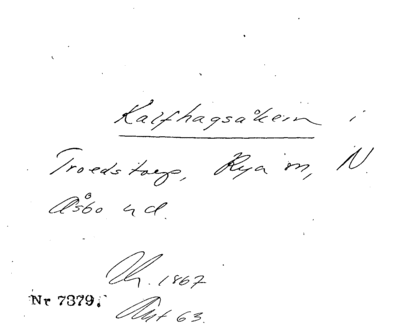 Kalfhagsåkern i
Troedstorp, Rya sn, N.
Åsbo hd.
Ak. 1867
Nr 7379. Akt 63.